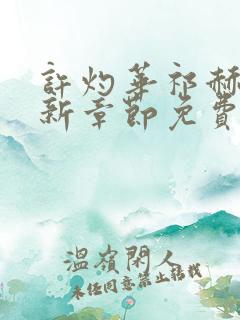 許灼華祁赫
新章節免費
溫嶺閑人
未经同意禁止转载